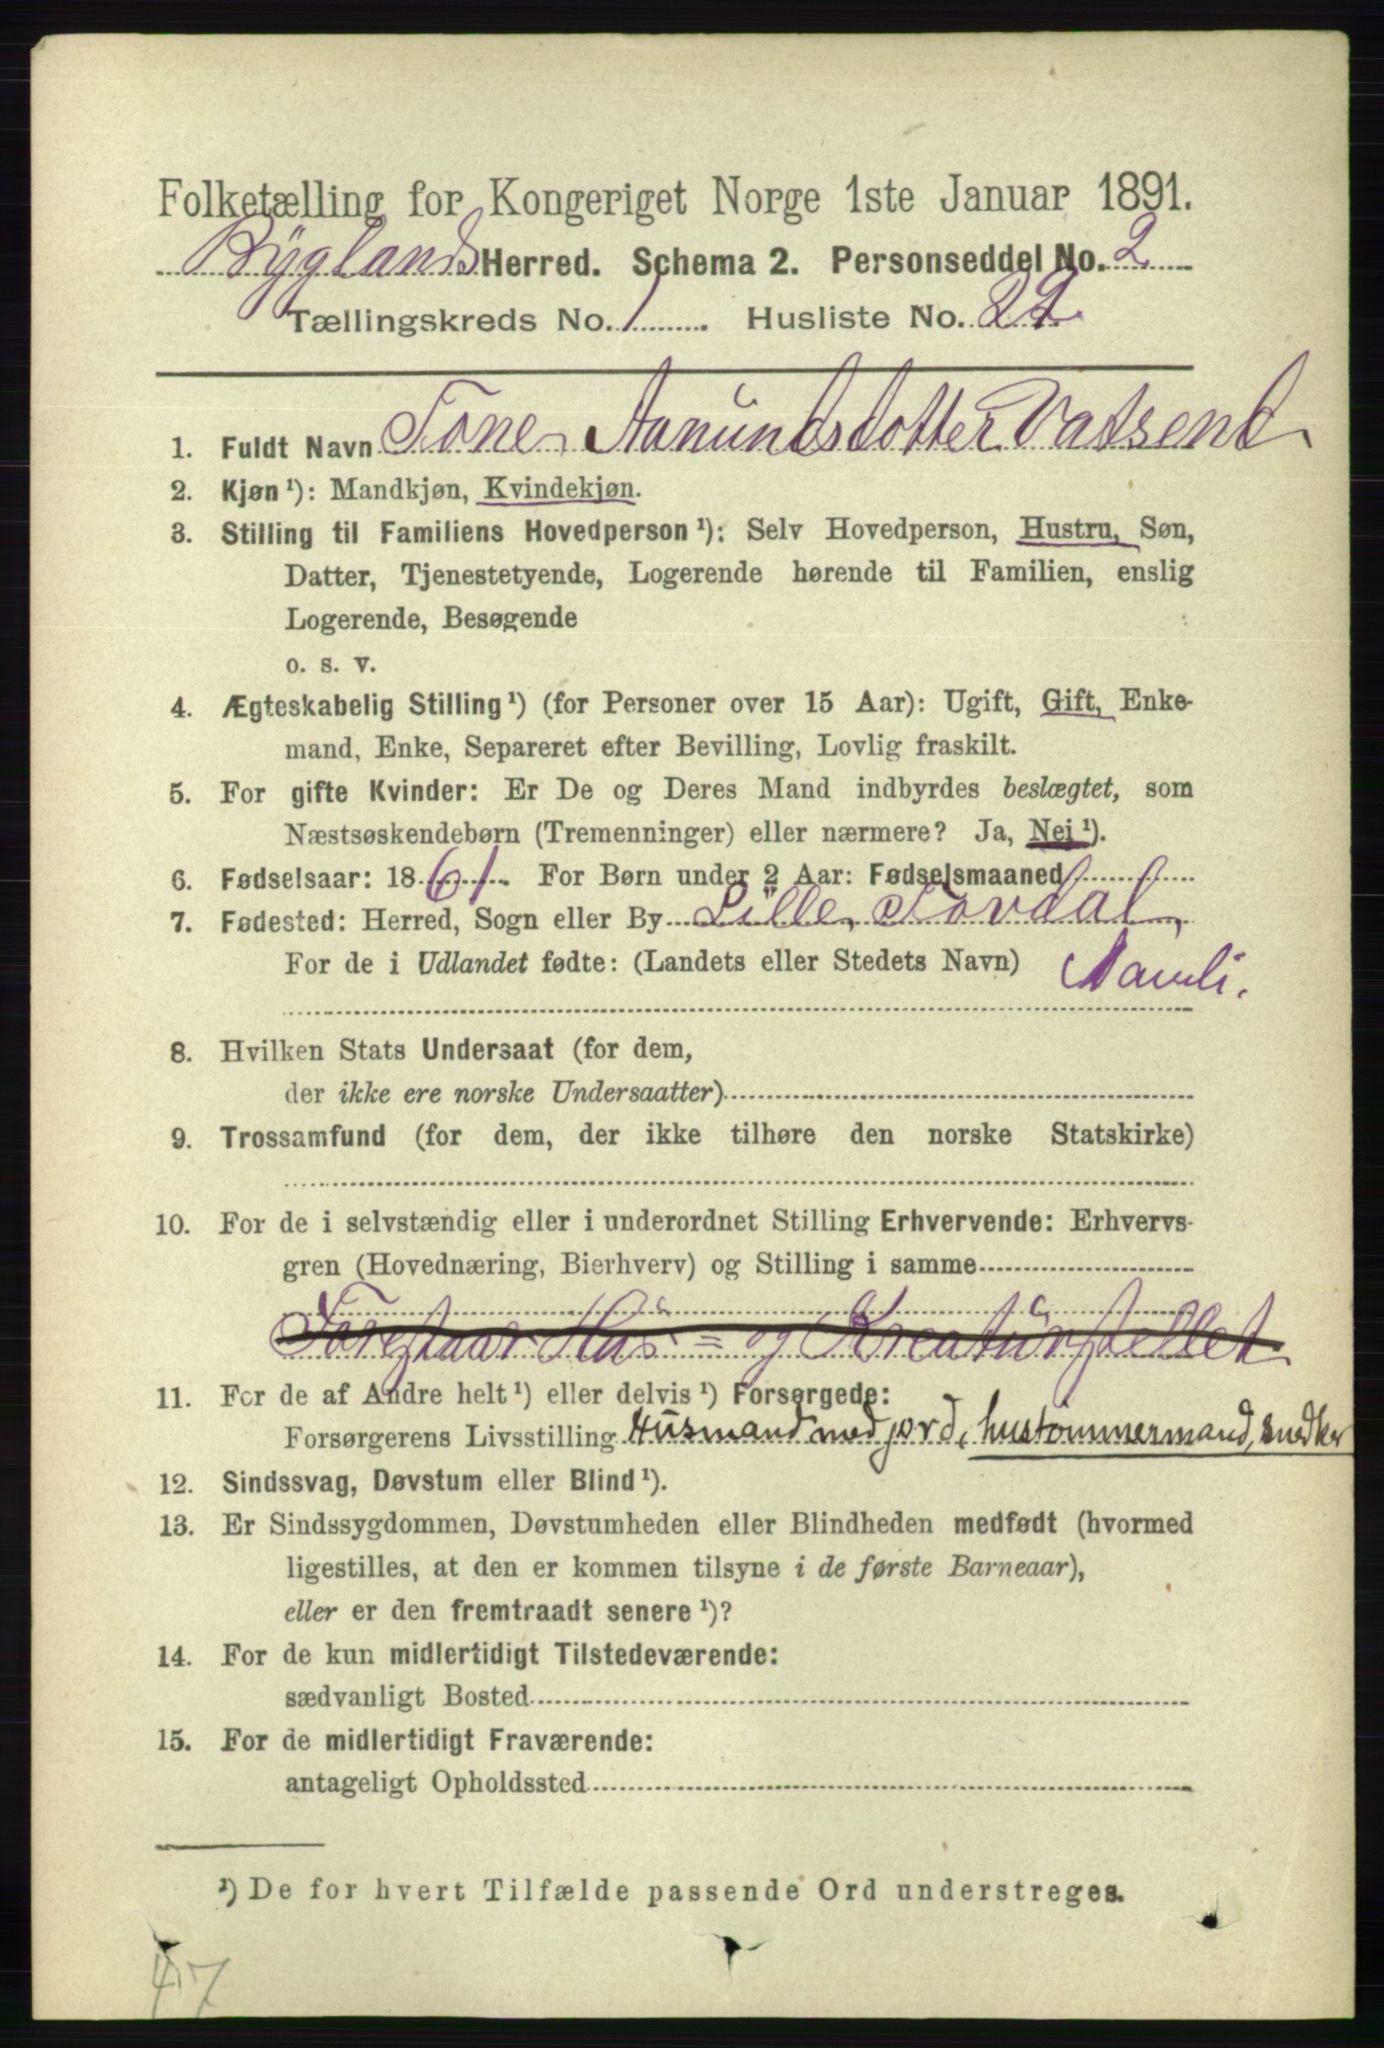 Folketælling for Kongeriget Norge 1ste Januar 1891.
Byglands Herred. Schema 2. Personseddel No. 2
Tællingskreds No. 1 Husliste No. 22
1. Fuldt Navn Tone Aanundsdotter Vatsend
2. Kjøn ¹): Mandkjøn, Kvindekjøn.
3. Stilling til Familiens Hovedperson ¹): Selv Hovedperson, Hustru, Søn,
Datter, Tjenestetyende, Logerende hørende til Familien, enslig
Logerende, Besøgende
o. s. v.
4. Ægteskabelig Stilling ¹) (for Personer over 15 Aar): Ugift, Gift, Enke-
mand, Enke, Separeret efter Bevilling, Lovlig fraskilt.
5. For gifte Kvinder: Er De og Deres Mand indbyrdes beslægtet, som
Næstsøskendebørn (Tremenninger) eller nærmere? Ja, Nei ¹).
6. Fødselsaar: 1861. For Børn under 2 Aar: Fødselsmaaned
7. Fødested: Herred, Sogn eller By Lille, Tovdal,
For de i Udlandet fødte: (Landets eller Stedets Navn) Aamli.
8. Hvilken Stats Undersaat (for dem,
der ikke ere norske Undersaatter)
9. Trossamfund (for dem, der ikke tilhøre den norske Statskirke)
10. For de i selvstændig eller i underordnet Stilling Erhvervende: Erhvervs-
gren (Hovednæring, Bierhverv) og Stilling i samme
Forestaar Hus= og Kreaturstellet
11. For de af Andre helt ¹) eller delvis ¹) Forsørgede:
Forsørgerens Livsstilling Husmand med jord, hustømmermand, snedker
12. Sindssvag, Døvstum eller Blind ¹).
13. Er Sindssygdommen, Døvstumheden eller Blindheden medfødt (hvormed
ligestilles, at den er kommen tilsyne i de første Barneaar),
eller er den fremtraadt senere ¹)?
14. For de kun midlertidigt Tilstedeværende:
sædvanligt Bosted
15. For de midlertidigt Fraværende:
antageligt Opholdssted
¹) De for hvert Tilfælde passende Ord understreges.
47